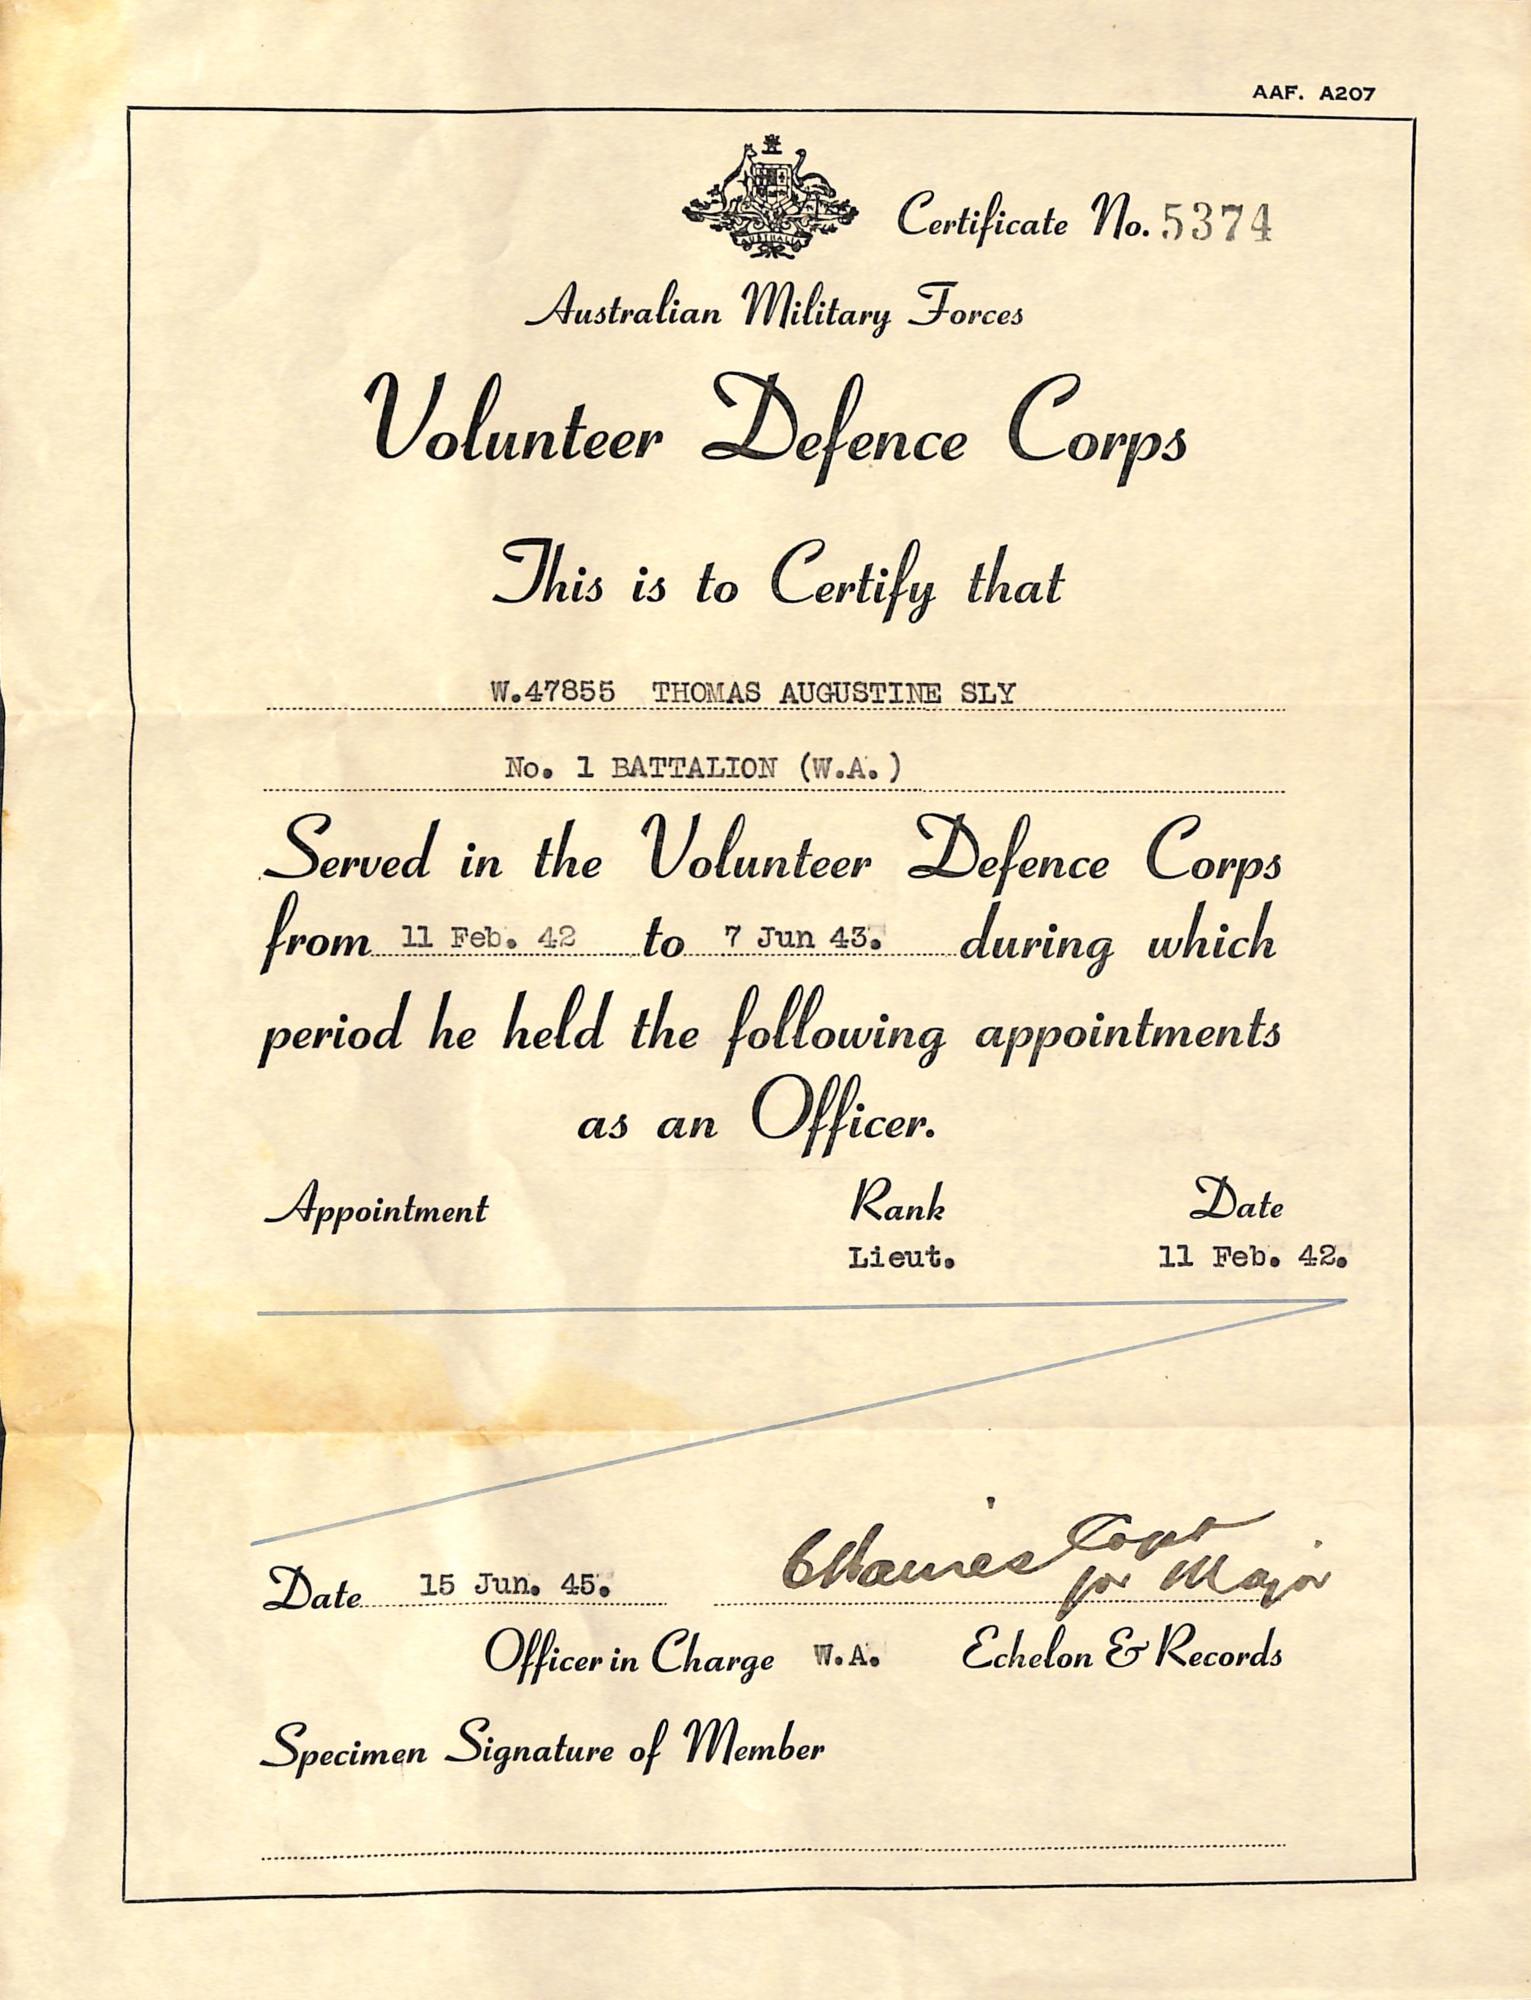 AAF. A207
AUSTRALIA
Certificate No. 5374
Australian Military Forces
Volunteer Defence Corps
This is to Certify that
W.47855 THOMAS AUGUSTINE SLY
No. 1 BATTALION (W.A.)
Served in the Volunteer Defence Corps
from 11 Feb. 42 to 7 Jun 43. during which
period he held the following appointments
as an Officer.
Appointment Rank Date
Lieut. 11 Feb. 42.
Capt
for Major
Date 15 Jun. 45.
Officer in Charge W.A. Echelon & Records
Specimen Signature of Member